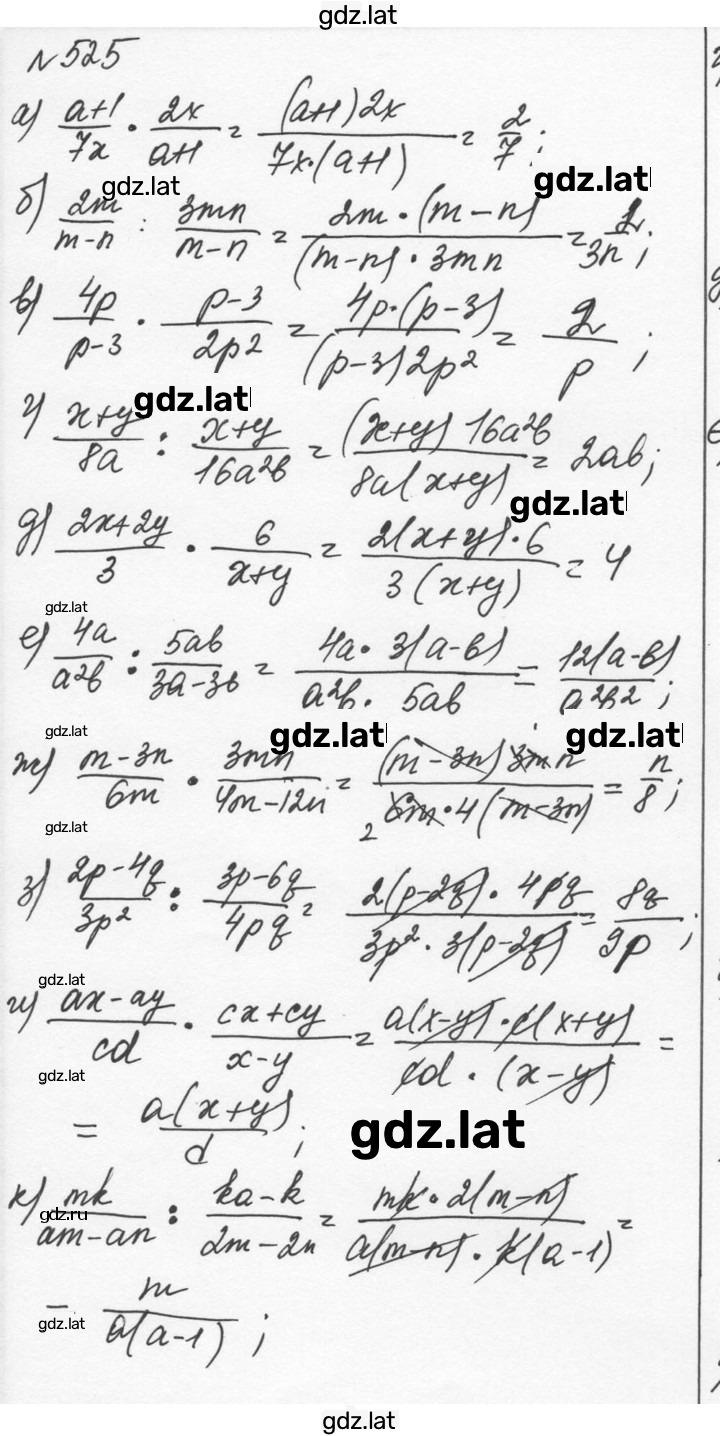 gdz.lat
N 525
а) (a+1)/(7x) · (2x)/(a+1) = ((a+1)2x)/(7x·(a+1)) = 2/7;
gdz.lat gdz.lat
б) (2m)/(m-n) : (3mn)/(m-n) = (2m·(m-n))/((m-n)·3mn) = 2/(3n);
в) (4p)/(p-3) · (p-3)/(2p2) = (4p·(p-3))/((p-3)2p²) = 2/p;
gdz.lat
г) (x+y)/(8a) : (x+y)/(16a²b) = ((x+y)16a²b)/(8a(x+y)) = 2ab;
gdz.lat
д) (2x+2y)/3 · 6/(x+y) = (2(x+y)·6)/(3(x+y)) = 4
gdz.lat
е) (4a)/(a²b) : (5ab)/(3a-3b) = (4a·3(a-b))/(a²b·5ab) = (12(a-b))/(a²b²);
gdz.lat gdz.lat gdz.lat
ж) (m-3n)/(6m) · (3mn)/(4m-12n) = ((m-3n)3mn)/(6m·4(m-3n)) = n/8;
2
gdz.lat
з) (2p-4q)/(3p²) : (3p-6q)/(4pq) = (2(p-2q)·4pq)/(3p²·3(p-2q)) = (8q)/(9p);
gdz.lat
и) (ax-ay)/(cd) · (cx+cy)/(x-y) = (a(x-y)·c(x+y))/(cd·(x-y)) =
gdz.lat
= (a(x+y))/d;
gdz.lat
к) (mk)/(am-an) : (ka-k)/(2m-2n) = (mk·2(m-n))/(a(m-n)·k(a-1)) =
gdz.ru
= m/(a(a-1));
gdz.lat
gdz.lat